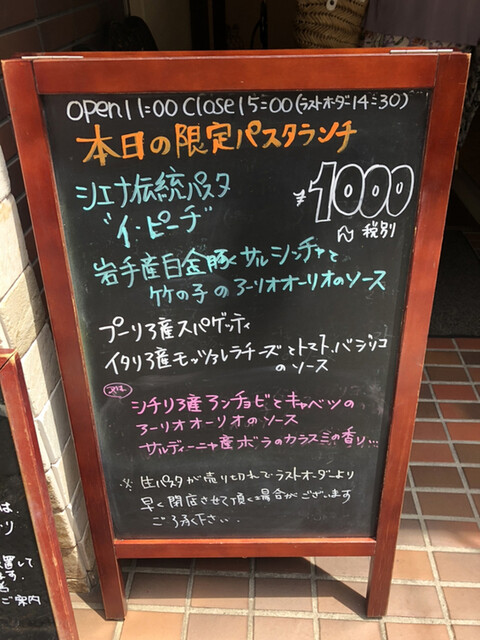 open 11:00 Close 15:00 (ラストオーダー14:30)
本日の限定パスタランチ
シエナ伝統パスタ
"イ・ピーチ"
¥1000
税別
岩手産白金豚サルシッチャと
竹の子のアーリオオーリオのソース
プーリア産スパゲッティ
イタリア産モッツァレラチーズとトマト、バジリコ
のソース
又は
シチリア産アンチョビとキャベツの
アーリオオーリオのソース
サルディーニャ産ボラのカラスミの香り…
※生パスタが売り切れでラストオーダーより
早く閉店させて頂く場合がございます
ご了承下さい.
は.
置して
ます.
ご案内